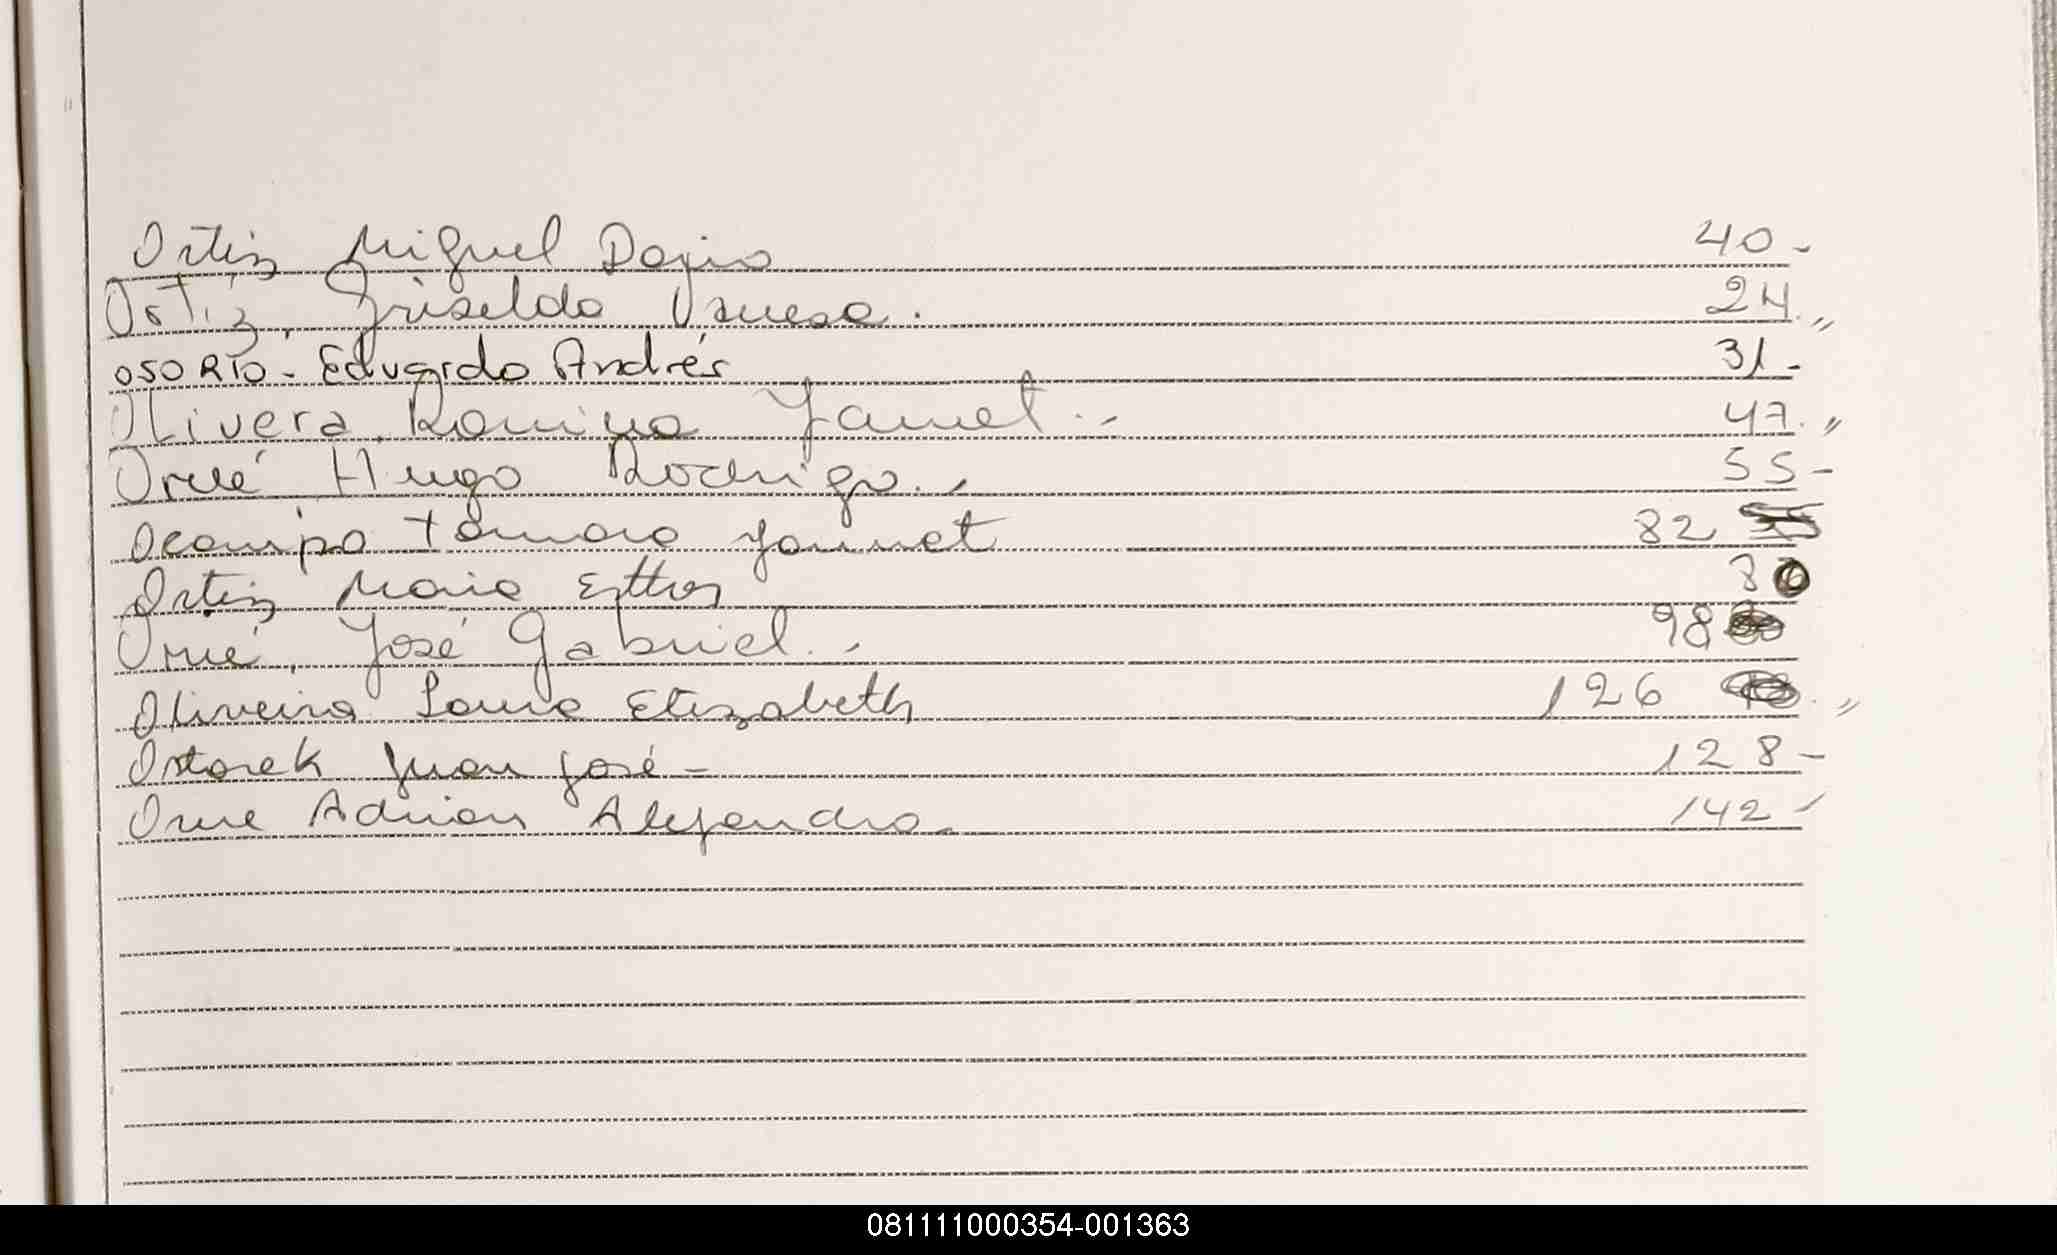 Ortiz Miguel Dario 40-
Ortiz, Griselda Vanesa. 24.,,
OSORIO - Eduardo Andrés 31-
Olivera, Romina Yanet.- 47.,,
Orué Hugo Rodrigo.- 55-
Ocampo Tamara Yannet 82
Ortiz Maria Esther 8
Orué, José Gabriel.- 98
Oliveira Laura Elizabeth 126 .,,
Ostarek Juan José - 128-
Orue Adrian Alejandro- 142-
081111000354-001363